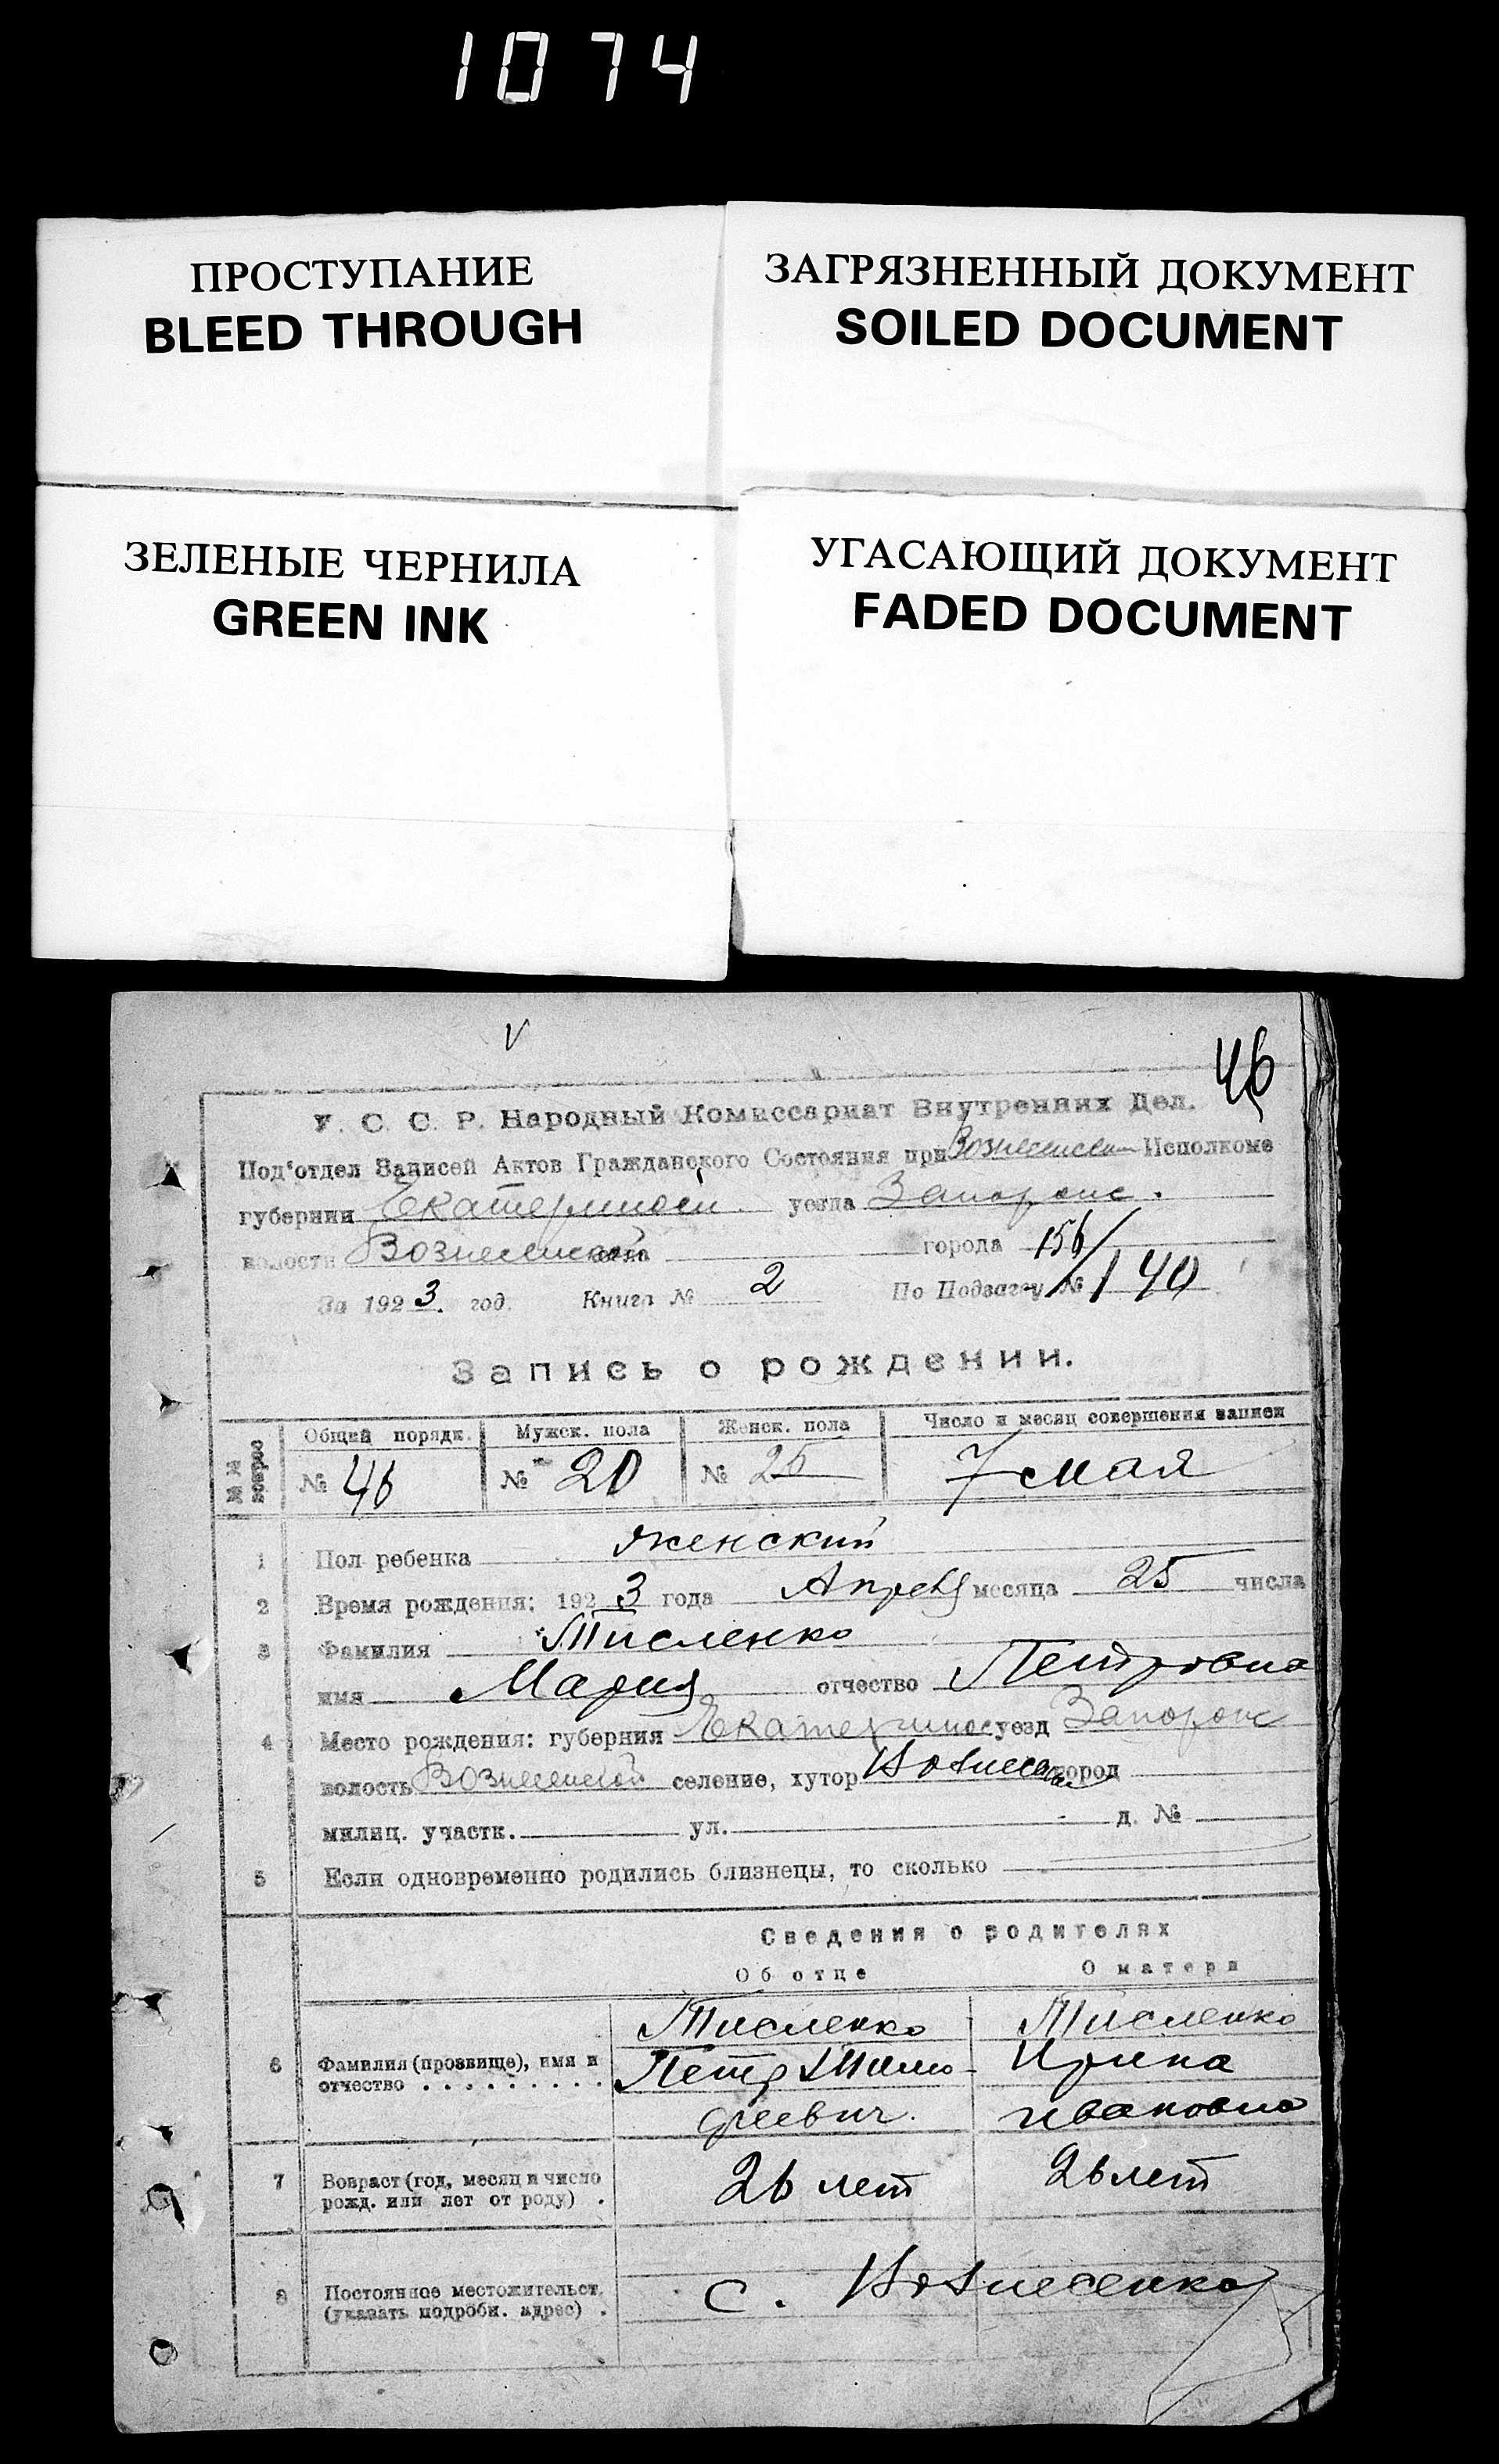 1074
ПРОСТУПАНИЕ
BLEED THROUGH
ЗАГРЯЗНЕННЫЙ ДОКУМЕНТ
SOILED DOCUMENT
ЗЕЛЕНЫЕ ЧЕРНИЛА
GREEN INK
УГАСАЮЩИЙ ДОКУМЕНТ
FADED DOCUMENT
V
46
У. С. С. Р. Народный Комиссариат Внутренних Дел.
Под'отдел Записей Актов Гражданского Состояния при Вознесенском Исполкоме
губернии Екатериносл. уезда Запорожс.
волости Вознесенской села города 156/
За 1923 год. Книга № 2 По Подзагсу № 140
Запись о рождении.
№№ вопрос Общий порядк. Мужск. пола Женск. пола Число и месяц совершения записи
№ 46 № 20 № 25 7 мая
1 Пол ребенка женский
2 Время рождения: 1923 года Апреля месяца 25 числа
3 Фамилия Тисленко
имя Мария отчество Петровна
4 Место рождения: губерния Екатеринос уезд Запорожс
волость Вознесенской селение, хутор город
милиц. участк. ул. д. №
5 Если одновременно родились близнецы, то сколько
Сведения о родителях
Об отце О матери
Тисленко Тисленко
6 Фамилия (прозвище), имя и Петр Тимо- Ирина
отчество . . . . . . . . . феевич. Ивановна
7 Возраст (год, месяц и число 26 лет 26 лет
рожд. или лет от роду) .
8 Постоянное местожительст. с. Вознесенка
(указать подробн. адрес) .